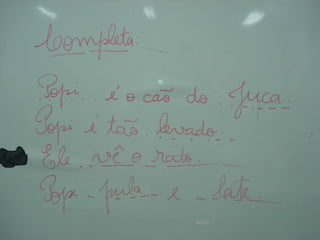 Completa:
Popi é o cão do Juca.
Popi é tão levado.
Ele vê o rato.
Popi pula e late.